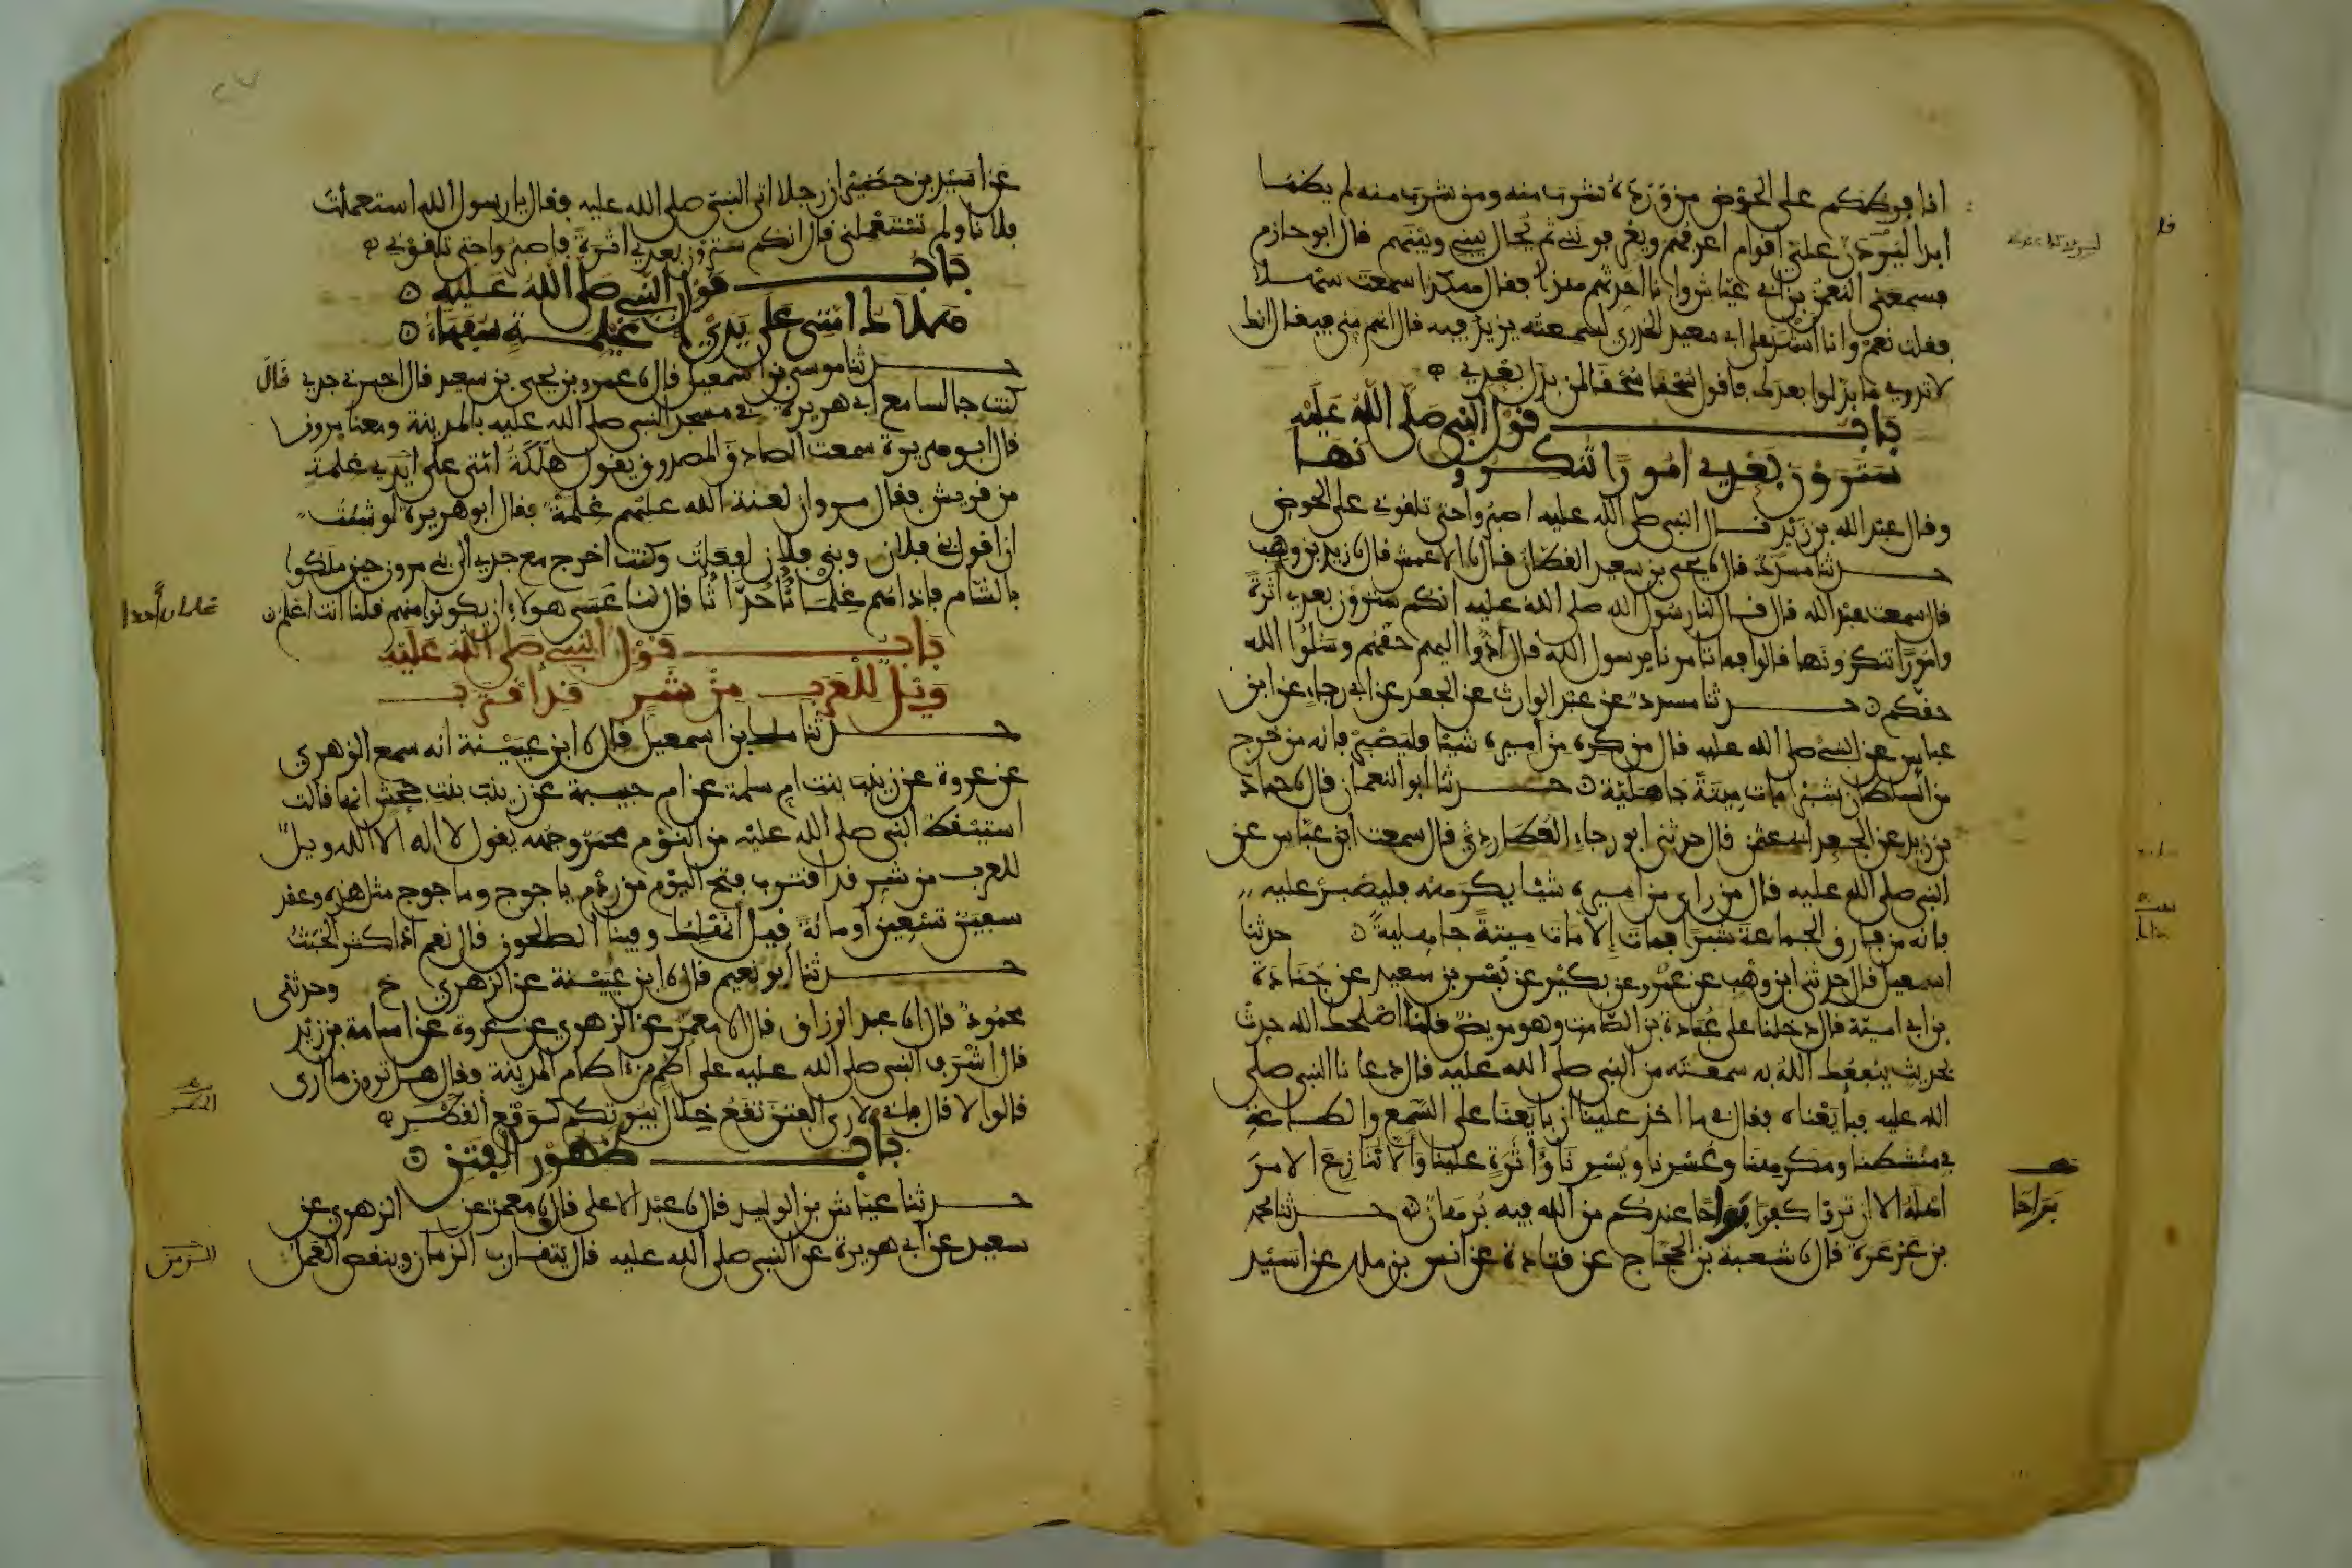 انا فرطكم على الحوض من ورده شرب منه ومن شرب منه لم يظما
ابدا ليردن علي اقوام اعرفهم ويعرفوني ثم يحال بيني وبينهم قال ابو حازم
فسمعني النعمن بن ابي عياش وانا احدثهم هذا فقال هكذا سمعت سهلا
فقلت نعم وانا اشهد على ابي سعيد الخدري لسمعته يزيد فيه قال انهم مني فيقال انك
لا تدري ما بدلوا بعدك فاقول سحقا سحقا لمن بدل بعدي
باب قول النبي صلى الله عليه
سترون بعدي امورا تنكرونها
وقال عبد الله بن زيد قال النبي صلى الله عليه اصبروا حتى تلقوني على الحوض
حدثنا مسدد قال نا يحيى بن سعيد القطان قال نا الاعمش قال نا زيد بن وهب
قال سمعت عبد الله قال قال لنا رسول الله صلى الله عليه انكم سترون بعدي اثرة
وامورا تنكرونها قالوا فما تامرنا يرسول الله قال ادوا اليهم حقهم وسلوا الله
حقكم حدثنا مسدد عن عبد الوارث عن الجعد عن ابي رجاء عن ابن
عباس عن النبي صلى الله عليه قال من كره من اميره شيئا فليصبر فانه من خرج
من السلطان شبرا مات ميتة جاهلية حدثنا ابو النعمان قال نا حماد
بن زيد عن الجعد ابي عثمن قال حدثني ابو رجاء العطاردي قال سمعت ابن عباس عن
النبي صلى الله عليه قال من راى من اميره شيئا يكرهه فليصبر عليه
فانه من فارق الجماعة شبرا فمات الا مات ميتة جاهلية حدثنا
اسمعيل قال حدثني ابن وهب عن عمرو عن بكير عن بسر بن سعيد عن جنادة
بن ابي امية قال دخلنا على عبادة بن الصامت وهو مريض قلنا اصلحك الله حدث
بحديث ينفعك الله به سمعته من النبي صلى الله عليه قال دعانا النبي صلى
الله عليه فبايعناه فقال في ما اخذ علينا ان بايعنا على السمع والطاعة
في منشطنا ومكرهنا وعسرنا ويسرنا واثرة علينا والا ننازع الامر
اهله الا ان تروا كفرا بواحا عندكم من الله فيه برهان حدثنا محمد
بن عرعرة قال نا شعبة بن الحجاج عن قتادة عن انس بن ملك عن اسيد
براحا
عن اسيد بن حضير ان رجلا اتى النبي صلى الله عليه فقال يا رسول الله استعملت
فلانا ولم تستعملني قال انكم سترون بعدي اثرة فاصبروا حتى تلقوني
باب قول النبي صلى الله عليه
هلاك امتي على يدي اغيلمة سفهاء
حدثنا موسى بن اسمعيل قال نا عمرو بن يحيى بن سعيد قال اخبرني جدي قال
كنت جالسا مع ابي هريرة في مسجد النبي صلى الله عليه بالمدينة ومعنا مرون
قال ابو هريرة سمعت الصادق المصدوق يقول هلكة امتي على ايدي غلمة
من قريش فقال مروان لعنة الله عليهم غلمة فقال ابو هريرة لو شئت
ان اقول بني فلان وبني فلان لفعلت وكنت اخرج مع جدي الى بني مرون حين ملكوا
بالشام فاذا راهم غلمانا احداثا قال لنا عسى هولاء ان يكونوا منهم قلنا انت اعلم
باب قول النبي صلى الله عليه
ويل للعرب من شر قد اقترب
حدثنا ملك بن اسمعيل قال نا ابن عيينة انه سمع الزهري
عن عروة عن زينب بنت ام سلمة عن ام حبيبة عن زينب بنت جحش انها قالت
استيقظ النبي صلى الله عليه من النوم محمر وجهه يقول لا اله الا الله ويل
للعرب من شر قد اقترب فتح اليوم من ردم ياجوج وماجوج مثل هذه وعقد
سفين تسعين او مائة قيل انهلك وفينا الصالحون قال نعم اذا كثر الخبث
حدثنا ابو نعيم قال نا ابن عيينة عن الزهري ح وحدثني
محمود قال انا عبد الرزاق قال انا معمر عن الزهري عن عروة عن اسامة بن زيد
قال اشرف النبي صلى الله عليه على اطم من اطام المدينة فقال هل ترون ما ارى
قالوا لا قال فاني لارى الفتن تقع خلال بيوتكم كوقع القطر
باب ظهور الفتن
حدثنا عياش بن الوليد قال نا عبد الاعلى قال نا معمر عن الزهري عن
سعيد عن ابي هريرة عن النبي صلى الله عليه قال يتقارب الزمان وينقص العمل
غلمان احدا